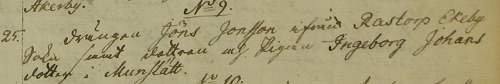 Akerby.
No 9.
25. Drängen Jöns Jonsson ifrån Rastorp Ekeby
Sokn samt dottren och Pigan Ingeborg Johans
dotter i Munslätt.